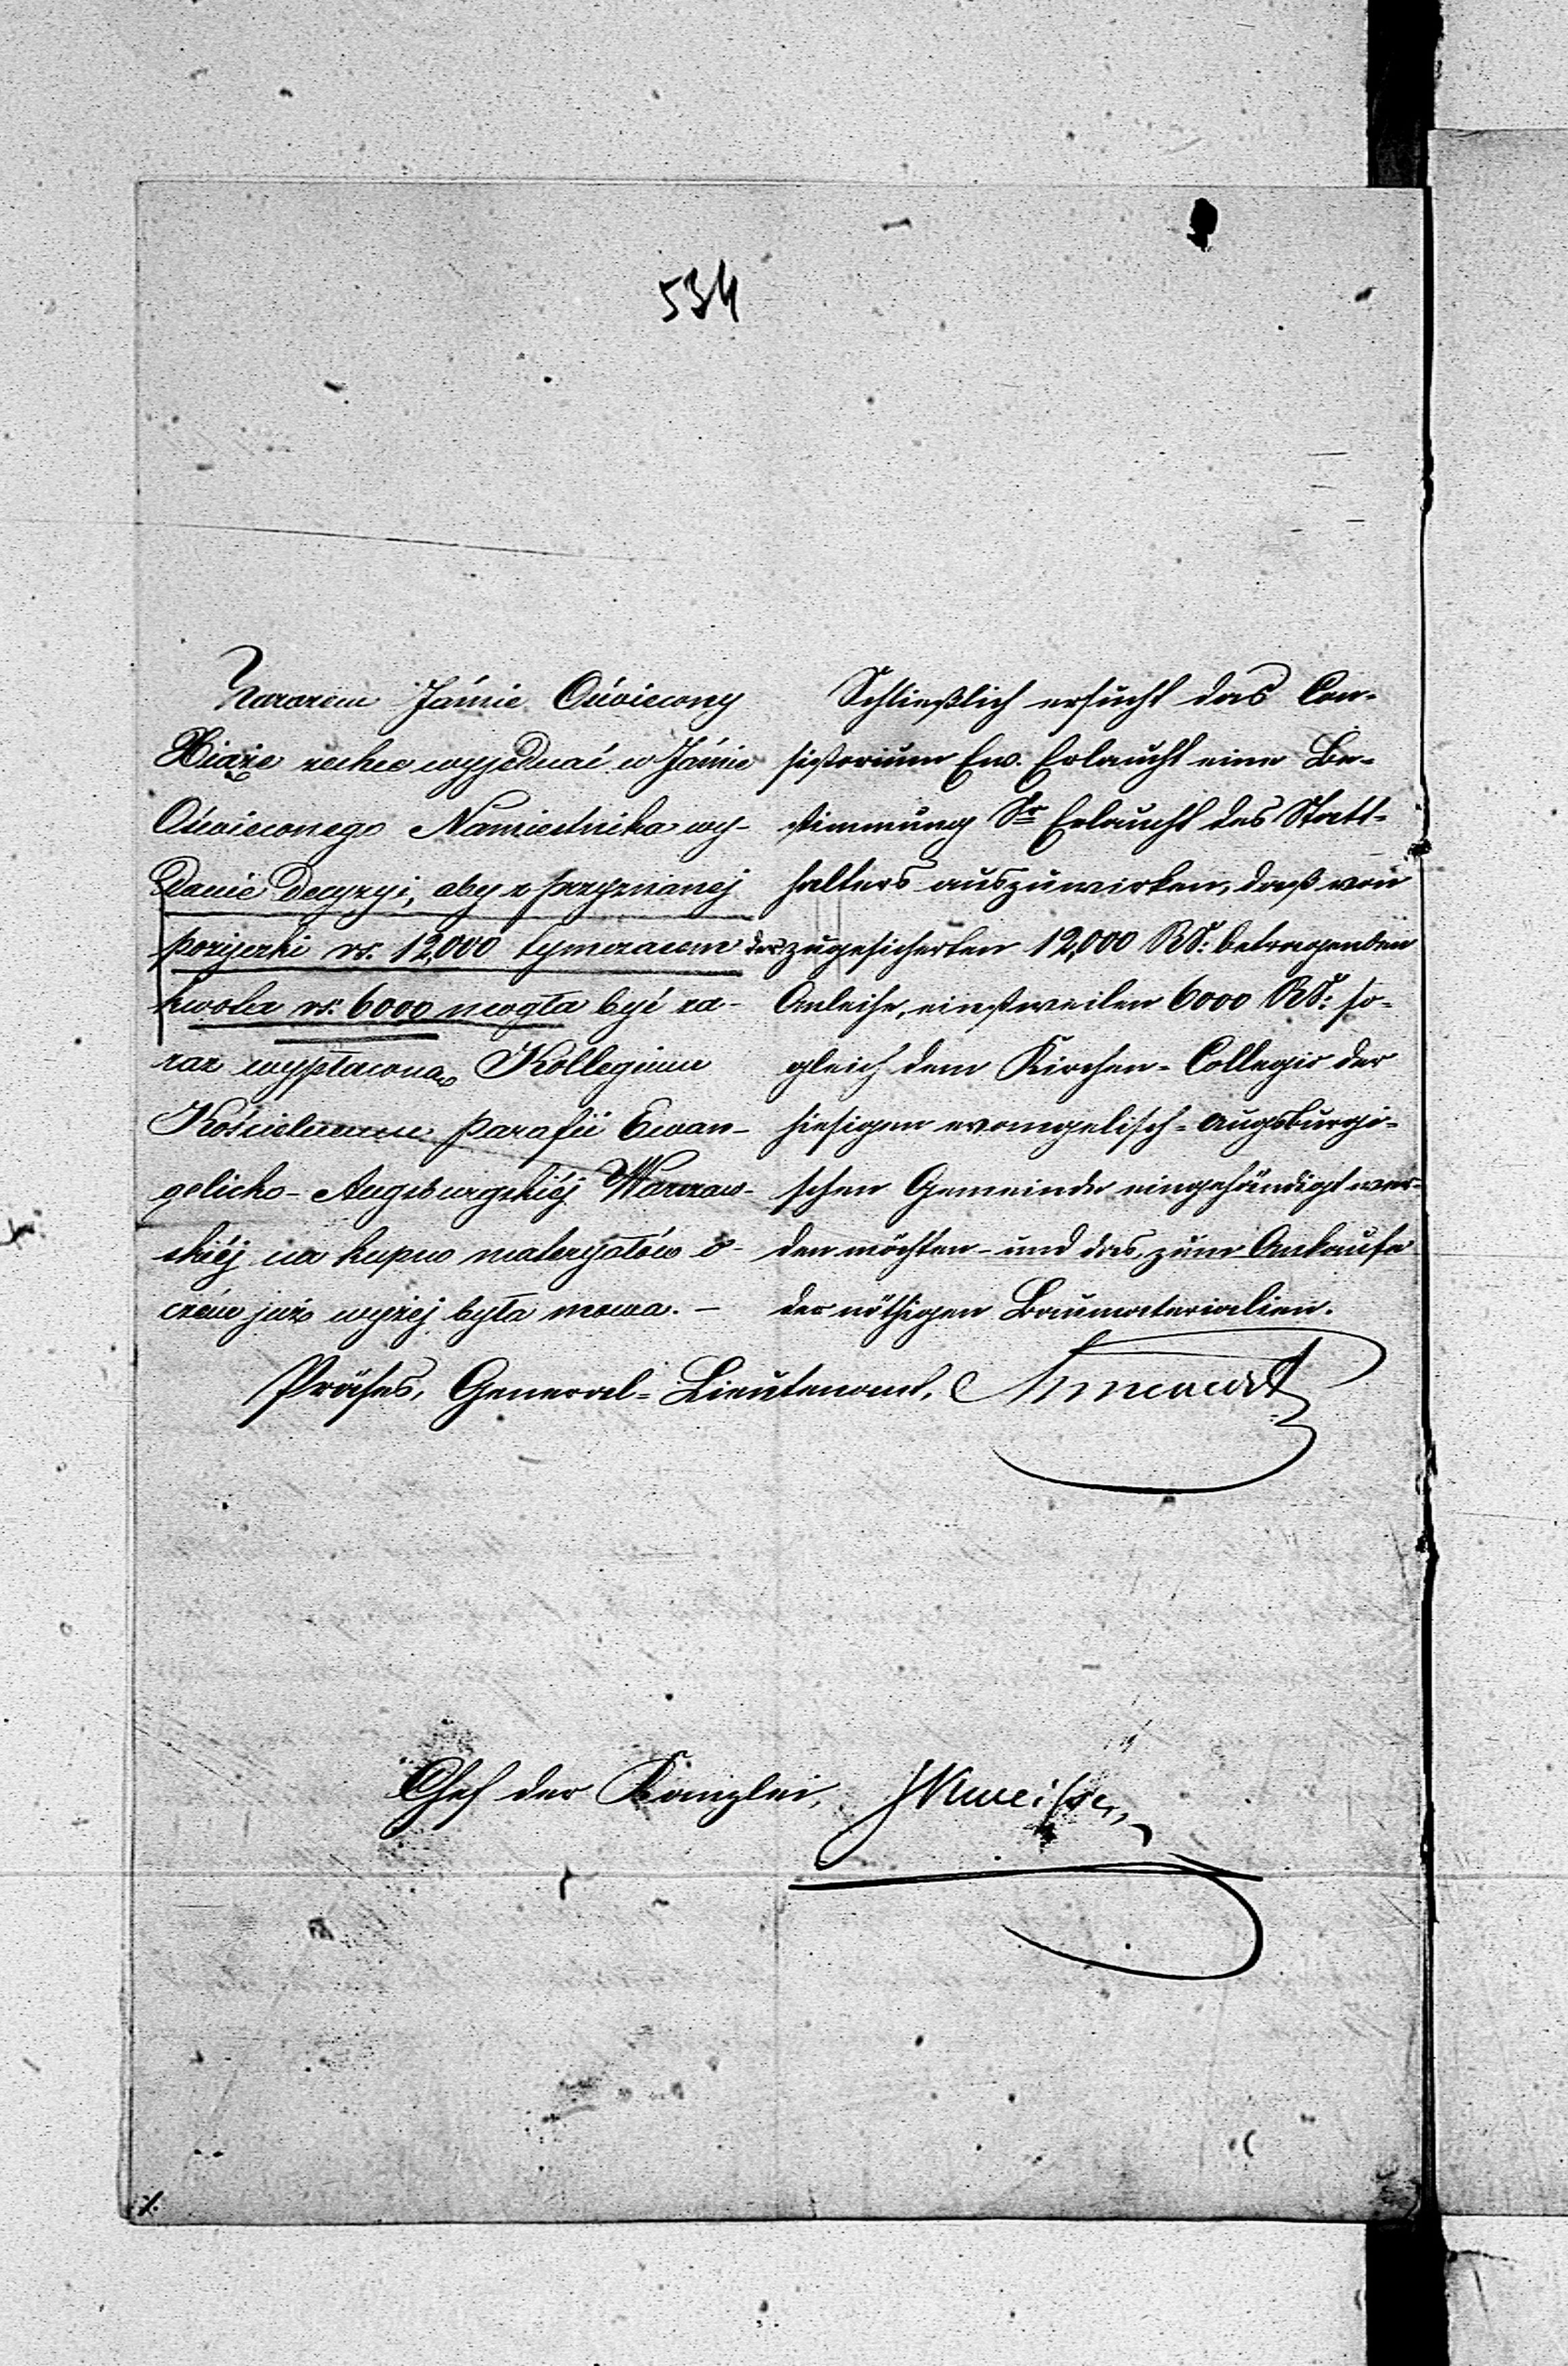 534
Zarazem Jaśnie Oświecony
Xiąże zechce wyjednać w Jaśnie
Oświeconego Namiestnika wy-
danie Decyzyi, aby z przyznanej
pożyczki rs. 12,000 tymczasem
kwota rs: 6000 mogła być za-
raz wypłacona Kollegium
Kościelnemu parafii Ewan-
gelicko-Augsburgskiéj Warszaw-
skiéj na kupno materyałów o-
czém już wyżej była mowa. –
Schließlich ersucht das Con-
sistorium Ew. Erlaucht eine Be-
stimmung Sr Erlaucht des Statt-
halters auszuwirken, daß von
der zugesicherten 12,000 RS: betragenden
Anleihe, einstweilen 6000 RS: so-
gleich dem Kirchen-Collegio der
hiesigen evangelisch-augsburgi-
schen Gemeinde eingehändigt wer-
den möchten – und das, zum Ankaufe
der nöthigen Baumaterialien.
Präses, General-Lieutenant,
Chef der Kanzlei,